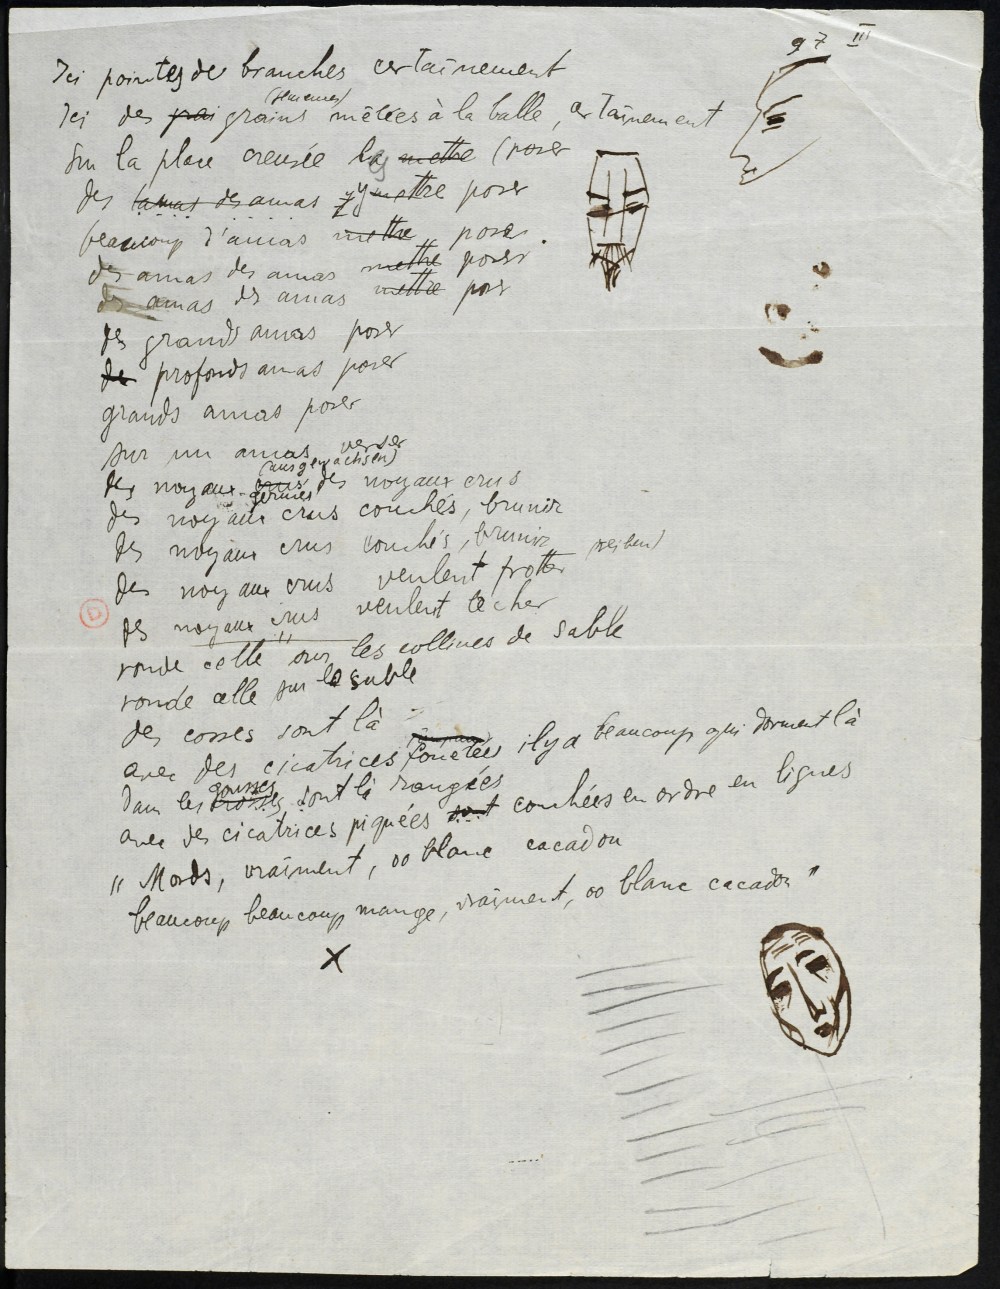 97 III
Ici pointes de branches certainement
(semences)
Ici des grai grains mêlées à la balle, certainement
Sur la place creusée les mettre (poser
des amas des amas y mettre poser
beaucoup d'amas mettre poser.
des amas des amas mettre poser
des amas des amas mettre poser
des grands amas poser
de profonds amas poser
grands amas poser
sur un amas verser
(ausgewachsen)
des noyaux crus des noyaux crus
germés
des noyaux crus couchés, brunir
des noyaux crus couchés, brunir
des noyaux crus veulent frotter (reiben)
des noyaux crus veulent lécher
D
ronde celle sur les collines de sable
ronde celle sur le sable
des cosses sont là
avec des cicatrices fouetées il y a beaucoup qui dorment là
gousses
Dans les sont là rangées
avec des cicatrices piquées sont couchées en ordre en lignes
"Mords, vraiment, oo blanc cacadou
beaucoup beaucoup mange, vraiment, oo blanc cacadou"
X